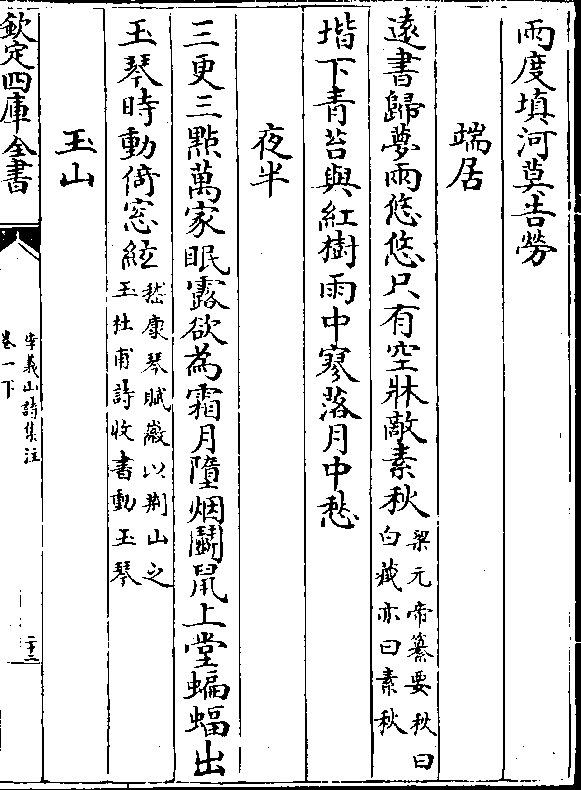 雨度填河莫告勞
端居
遠書歸夢兩悠悠只有空牀敵素秋梁元帝纂要秋曰
白藏亦曰素秋
堦下青苔與紅樹雨中寥落月中愁
夜半
三更三㸃萬家眠露欲為霜月墮烟鬭鼠上堂蝙蝠出
玉琴時動倚窓絃嵇康琴賦徽以荆山之
玉杜甫詩收書動玉琴
玉山
欽定四庫全書
李義山詩集注
卷一下
二十三